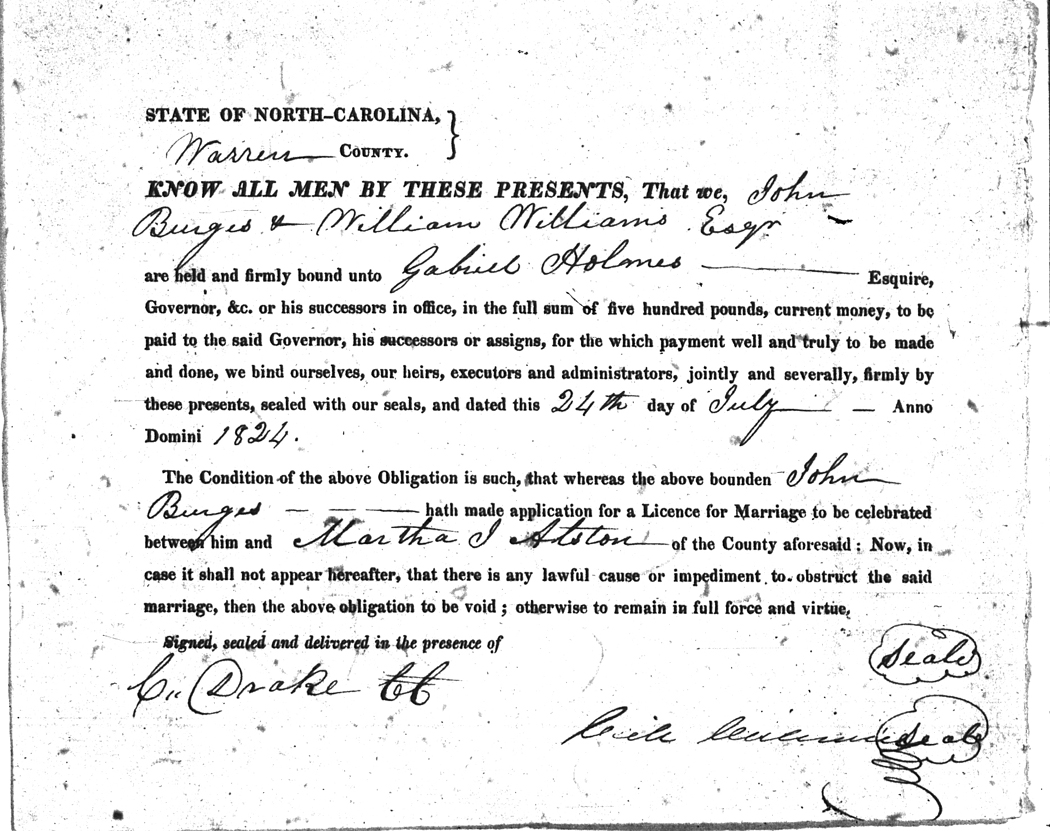 STATE OF NORTH-CAROLINA,
Warren COUNTY.
KNOW ALL MEN BY THESE PRESENTS, That we, John
Burges & William Williams Esqr
are held and firmly bound unto Gabriel Holmes Esquire,
Governor, &c. or his successors in office, in the full sum of five hundred pounds, current money, to be
paid to the said Governor, his successors or assigns, for the which payment well and truly to be made
and done, we bind ourselves, our heirs, executors and administrators, jointly and severally, firmly by
these presents, sealed with our seals, and dated this 24th day of July Anno
Domini 1824.
The Condition of the above Obligation is such, that whereas the above bounden John
Burges hath made application for a Licence for Marriage to be celebrated
between him and Martha J Alston of the County aforesaid: Now, in
case it shall not appear hereafter, that there is any lawful cause or impediment to obstruct the said
marriage, then the above obligation to be void; otherwise to remain in full force and virtue.
Signed, sealed and delivered in the presence of
Seale
C. Drake CC
Will Williams Seale